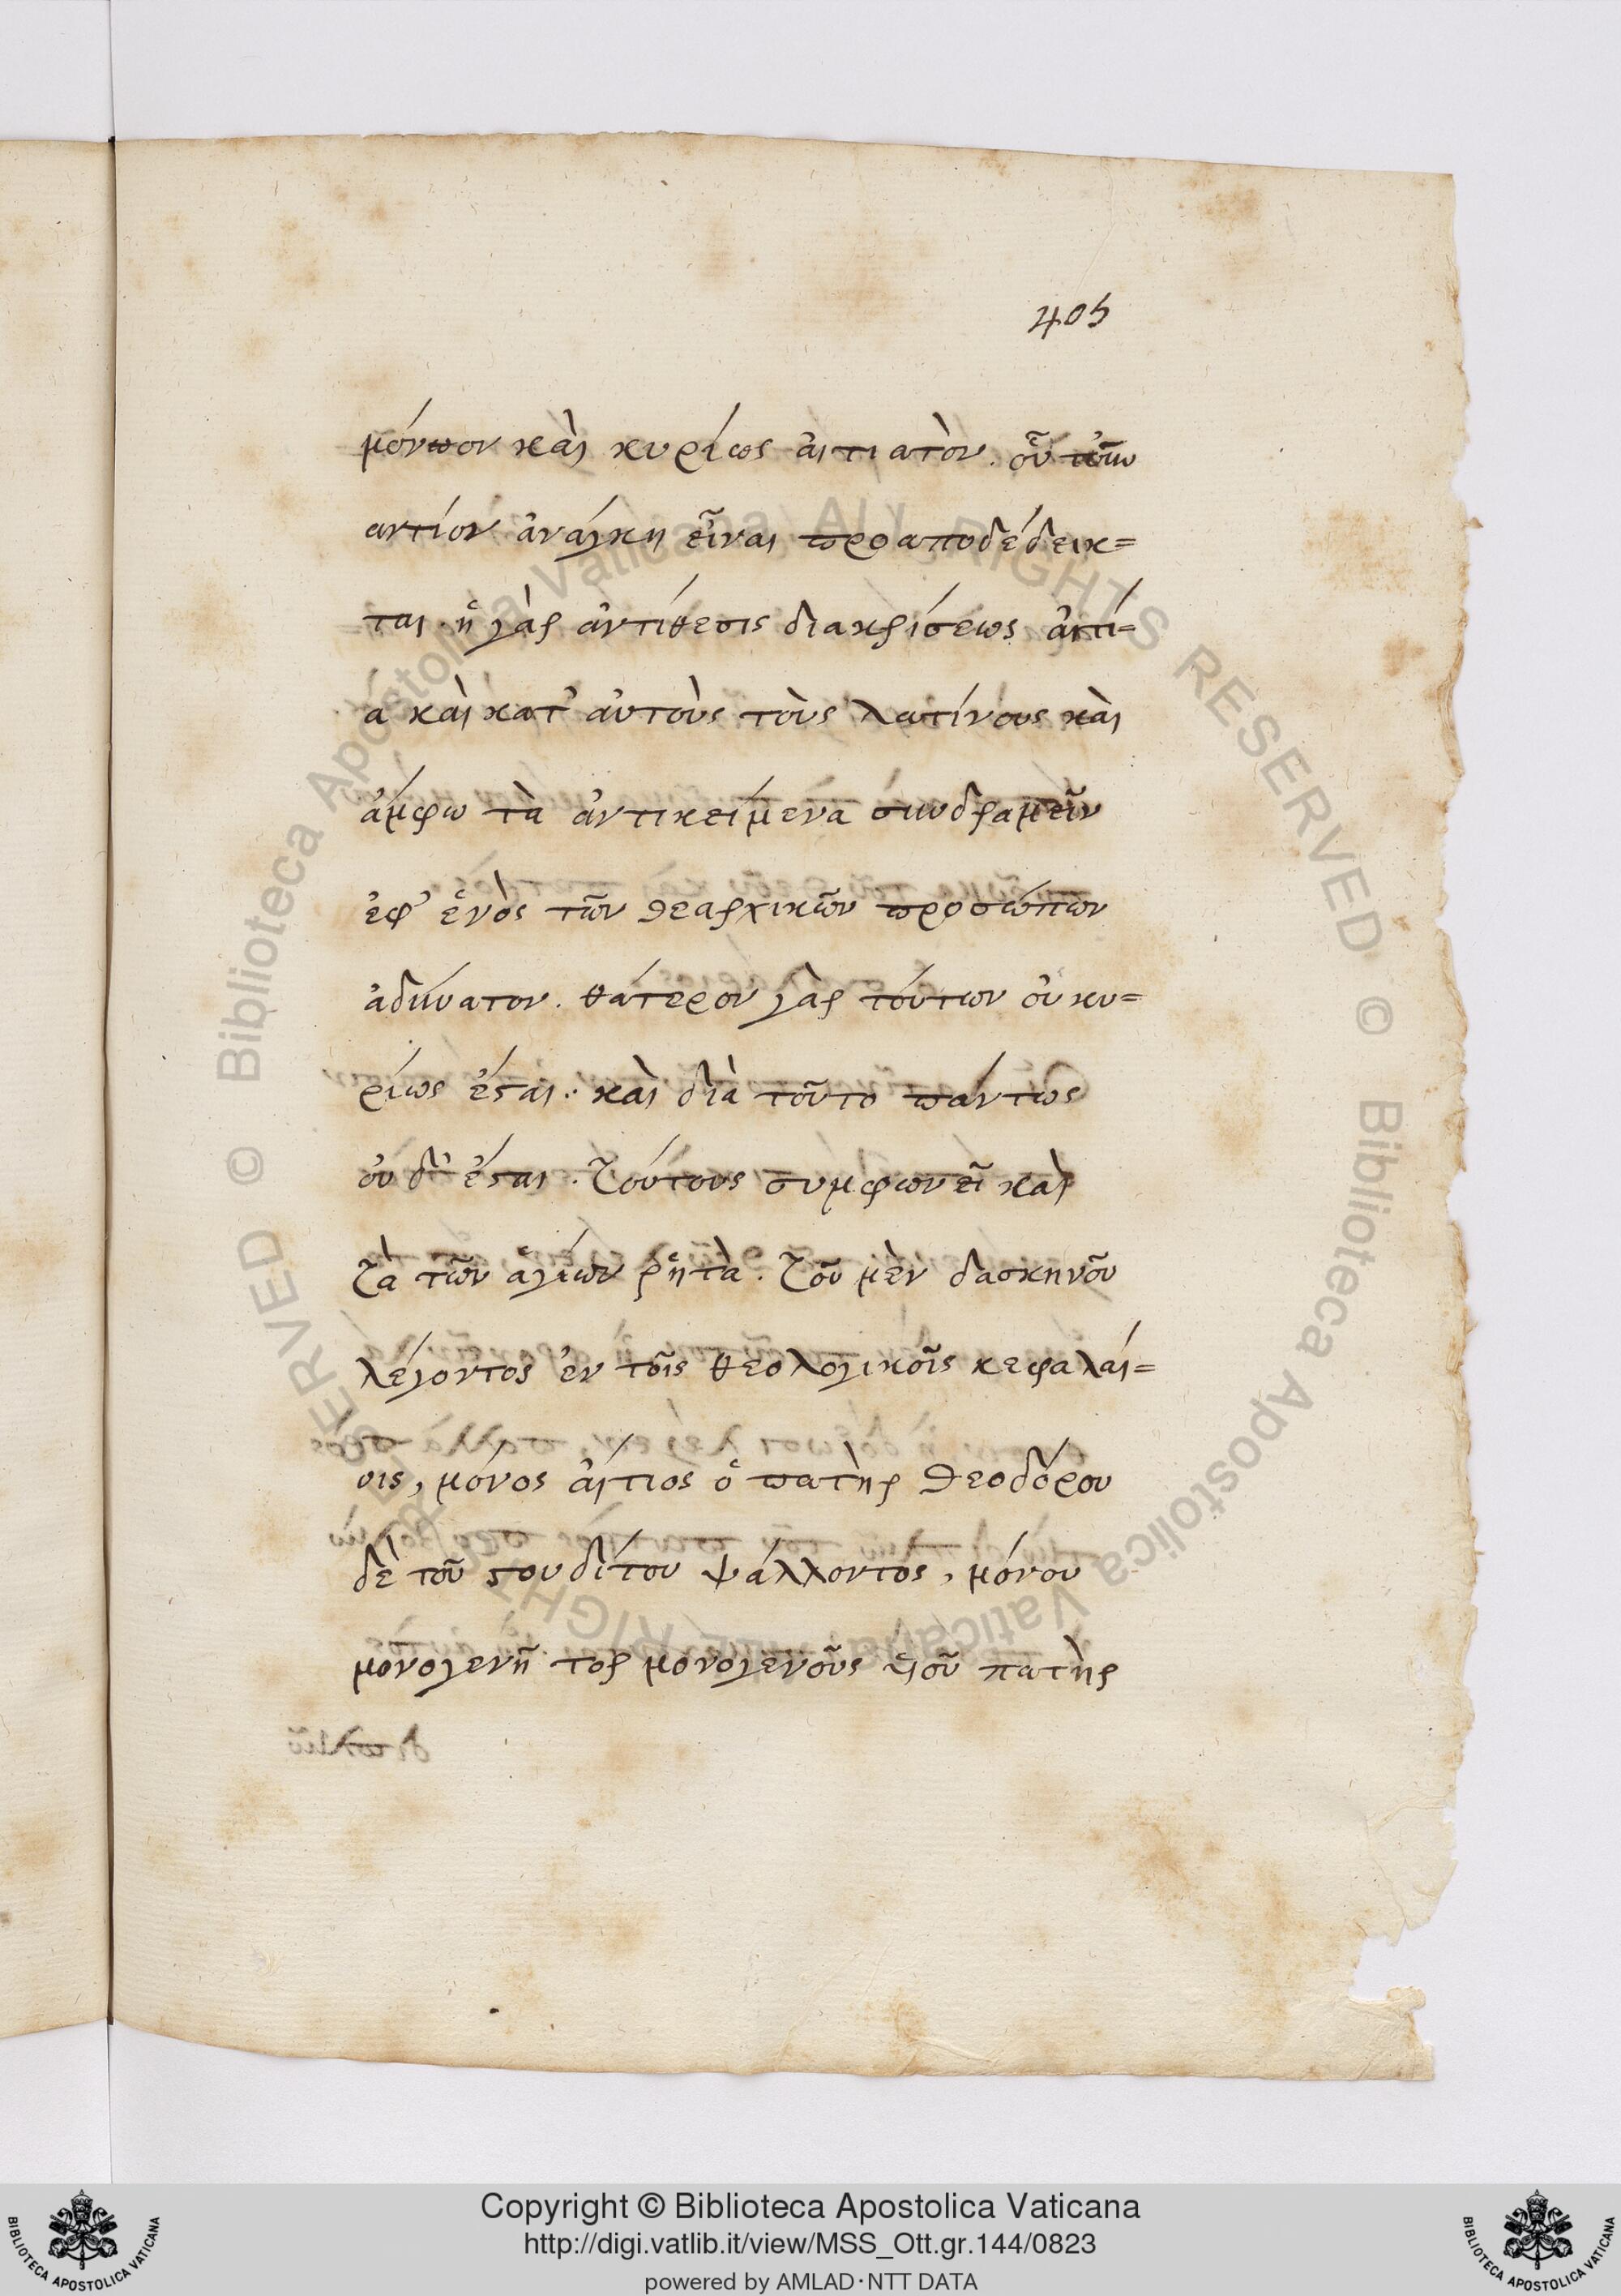 405
μόνπον καὶ κυρίως ἀιτιατὸν. οὗ τὦυν
αντίον ἀνάγκη εἶναι προαποδέδεικ=
ται. ἡ γὰρ ἀντίθεσις διακρίσεως ἀιτί=
α καὶ κατ' ἀυτοὺς τοὺς λατίνους καὶ
ἄμφω τὰ ἀντικείμενα συνδραμεῖν
ἐφ' ἑνὸς τῶν θεαρχικῶν προσώπων
ἀδύνατον. θάτερον γὰρ τόυτων ὀυ κυ=
ρίως ἔσται. καὶ διὰ τοῦτο πάντως
ὀυδ' ἔσται. Τόυτους συμφωνεῖ καὶ
Τὰ τῶν ἁγίων ῥητὰ. Τοῦ μὲν δασκηνοῦ
λέγοντος ἐν τοῖς θεολογικοῖς κεφαλάι=
οις, μόνος ἄιτιος ὁ πατὴρ θεοδόρου
δὲ τοῦ στουδίτου ψάλλοντος, μόνου
μονογενῆ τορ μονογενοῦς ὑιοῦ πατὴρ
Copyright © Biblioteca Apostolica Vaticana
http://digi.vatlib.it/view/MSS_Ott.gr.144/0823
powered by AMLAD·NTT DATA